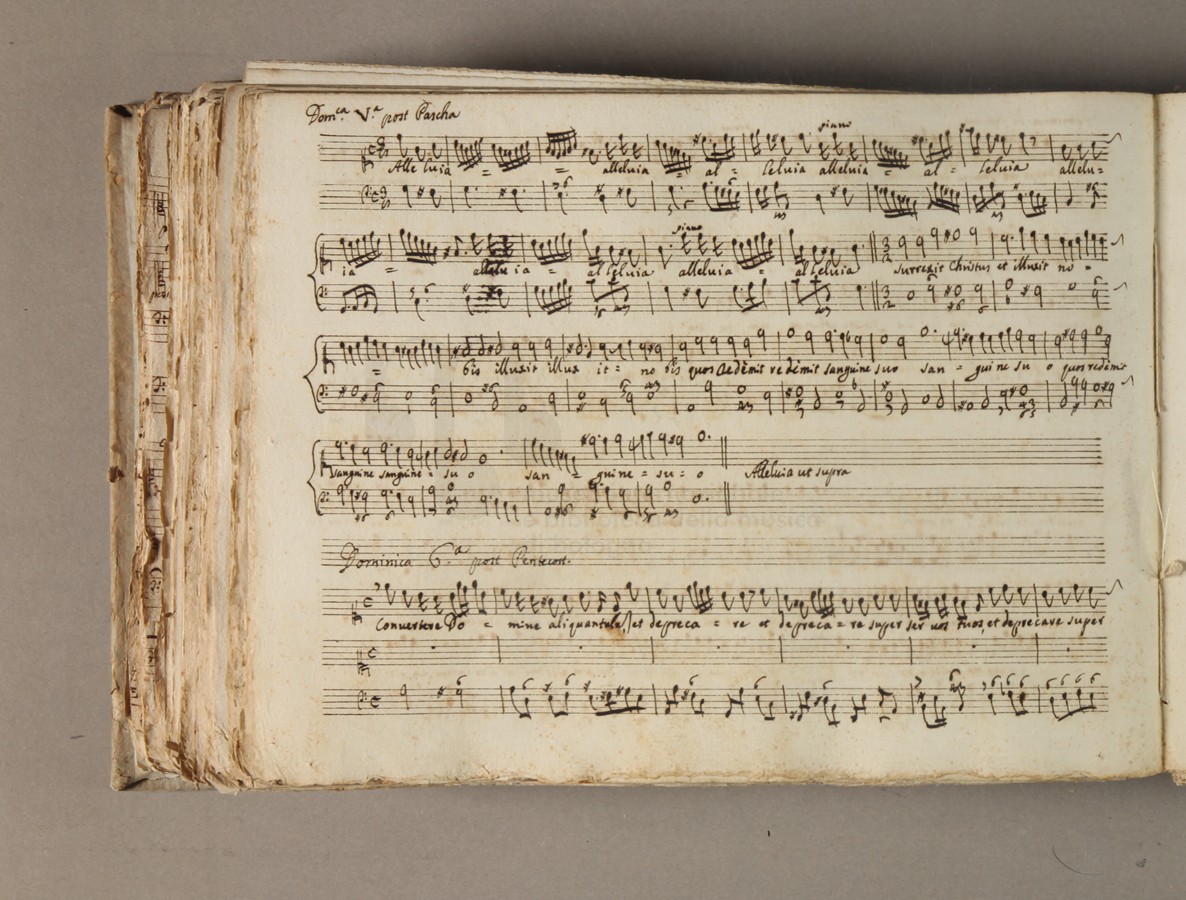 Dom.ca V.a post Pascha
piano
Alle luia = = alleluia al = leluia alleluia = al = leluia allelu=
piano
ia = alleluia = alleluia alleluia = alleluia surrexit Christus et illuxit no =
= bis illuxit illux it = no bis quos Redèmit redèmit sanguine suo san = guine su o quos redèmit
sanguine sanguine = su o san = guine = su = o Alleluia ut supra
Dominica 6.a post Pentecost.
Convertere Do = mine aliquantulù, et depreca = re et depreca = re super ser vos tuos, et deprecare super